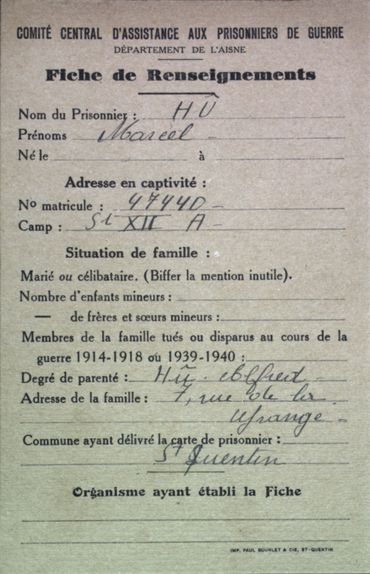 COMITÉ CENTRAL D'ASSISTANCE AUX PRISONNIERS DE GUERRE
DÉPARTEMENT DE L'AISNE
Fiche de Renseignements
Nom du Prisonnier : HÛ
Prénoms Marcel
Né le à
Adresse en captivité :
No matricule : 47440
Camp : St XII A
Situation de famille :
Marié ou célibataire. (Biffer la mention inutile).
Nombre d'enfants mineurs :
— de frères et sœurs mineurs :
Membres de la famille tués ou disparus au cours de la
guerre 1914-1918 ou 1939-1940 :
Degré de parenté : Hû Alfred
Adresse de la famille : 7, rue de la
grange
Commune ayant délivré la carte de prisonnier :
St Quentin
Organisme ayant établi la Fiche
IMP. PAUL BOURLET & CIE, ST-QUENTIN